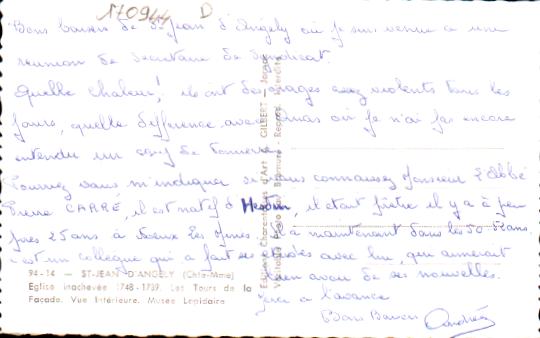 170944 D
Bons baisers de St Jean d'Angely où je suis venue à une
réunion de secrétaire de Syndicat.
Quelle chaleur! ils ont des orages assez violents tous les
jours, quelle différence avec où je n'ai pas encore
entendu un coup de tonnerre.
Pourriez vous m'indiquer si vous connaissez Monsieur l'Abbé
Pierre CARRÉ, il est natif d'Hesdin, il était prêtre il y a à peu
près 25 ans à les il a maintenant dans les 50 52 ans,
c'est un collègue qui a fait ses études avec lui, qui aimerait
bien avoir de ses nouvelles.
Merci à l'avance
Bons Baisers Andrée
94-14 — ST-JEAN D'ANGELY (Chte-Mme)
Eglise inachevée 1748-1789. Les Tours de la
Façade. Vue Intérieure. Musée Lapidaire
Editions Charentaises d'Art - GILBERT -
Véritable Photo au Bromure - Reprod. Interdite